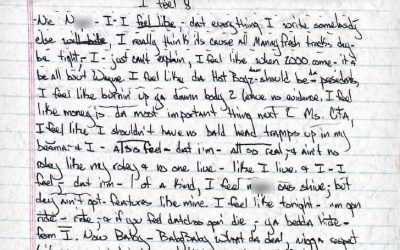 I feel
Nic N - I - I feel like - dat everything I write somebody
else will bite, I really think its cause all Mannyfresh tracks dey
be tight, I - just can't explain, I feel like when 2000 come - it
be all bout Wayne. I feel like da Hot Boyz - should be da presidents,
I feel like burnin' up ya damn body 2 leave no evidence. I feel
like money is da most important thing next 2 Ms. Cita,
I feel like I shouldn't have no bald head tramps up in my
beama & I - also feel - dat im - all so real, & ain't no
roley like my roley & no one live - like I live. & I - I
feel dat im - 1 of a kind, I feel as shive, but
dey ain't got features like mine. I feel like tonight - am gon
ride - rite, & if you feel datchoo gon' die, ya bedda hide -
from I. Now Baby - BabyBaby What da deal,